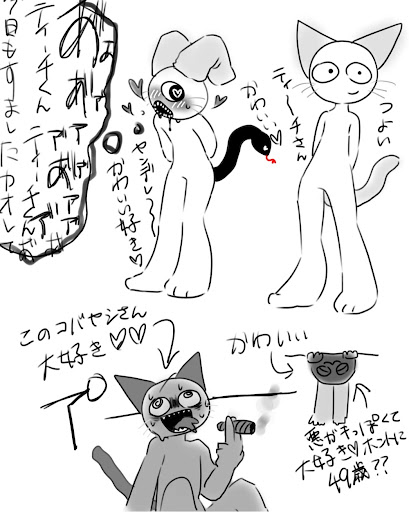 つよい
ティーチさん
かわいい♡
ヤンデレ〜〜
かわいい好き♡
ああ
ティーチくん
ティーチさん
今日もすましたカオし
このコバヤシさん
大好き♡♡
かわいい
悪ガキっぽくて
大好き♡ホントに
49歳??